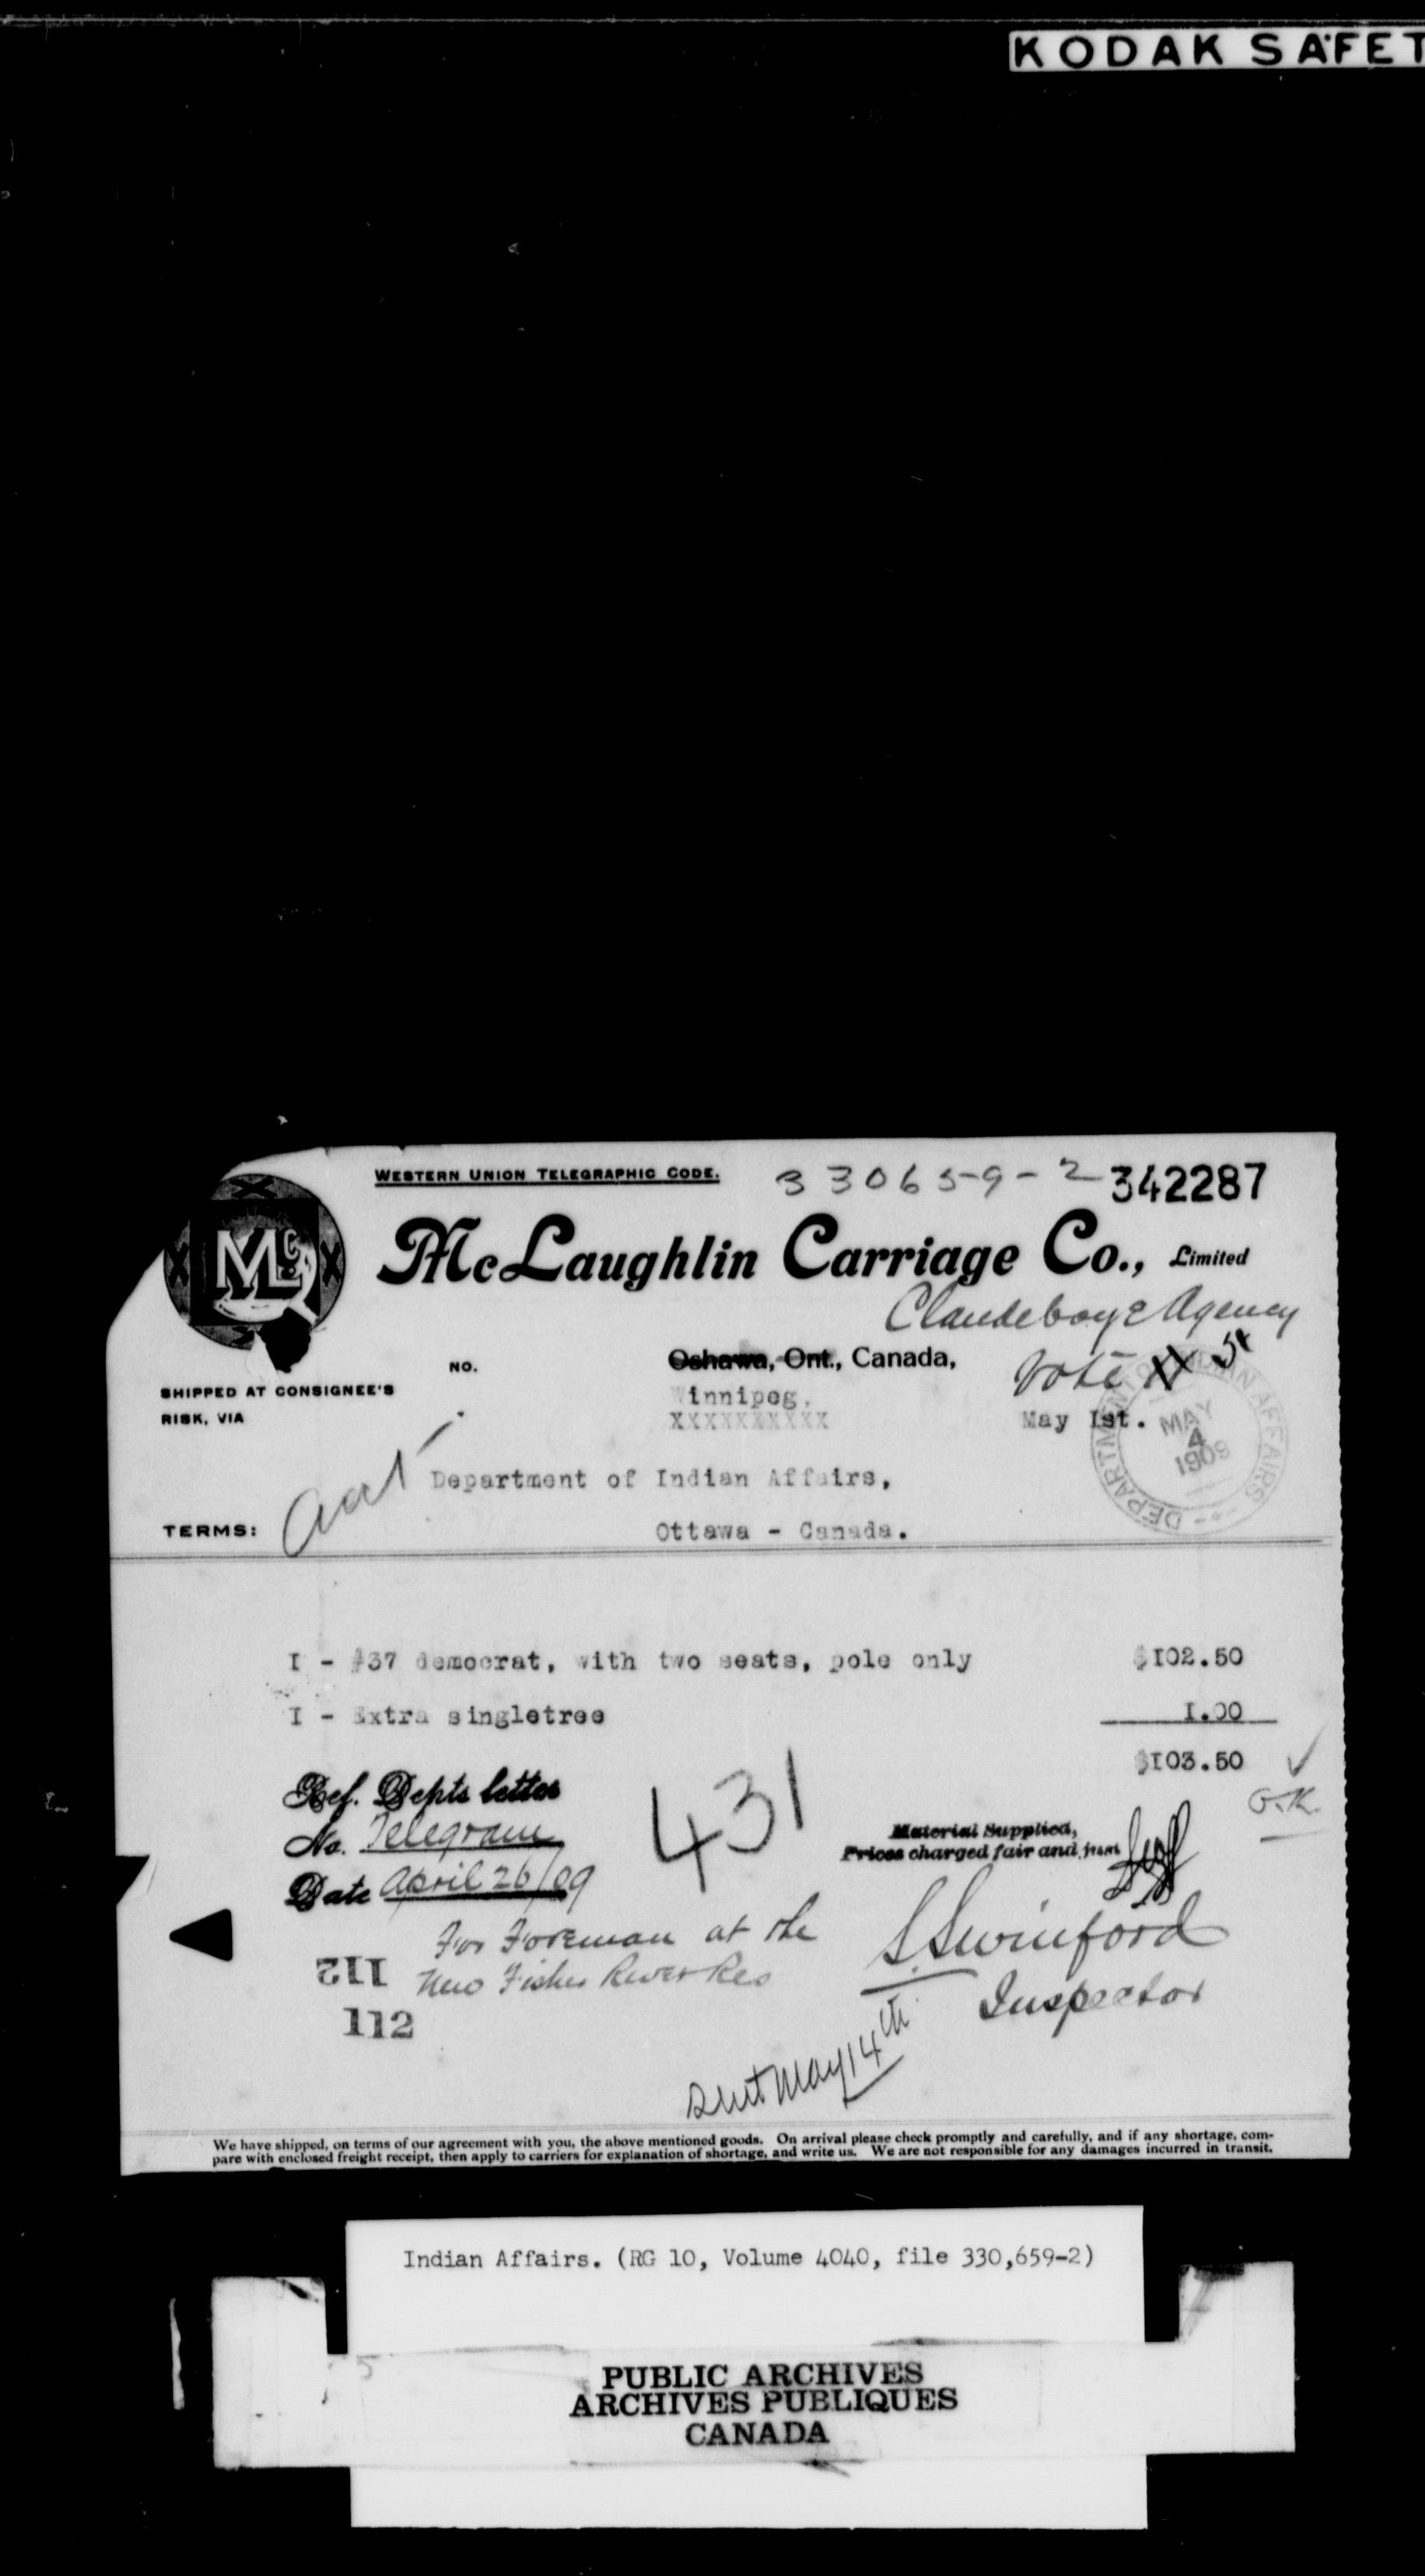 KODAK SAFET
WESTERN UNION TELEGRAPHIC CODE.
330659-2 342287
McL
McLaughlin Carriage Co., Limited
Claudeboye Agency
NO.
Oshawa, Ont., Canada,
Vote
SHIPPED AT CONSIGNEE'S
RISK, VIA
Winnipeg,
XXXXXXXXXX
May Ist.
DEPARTMENT OF INDIAN AFFAIRS
MAY
4
1909
Department of Indian Affairs,
TERMS:
Ottawa - Canada.
I - #37 democrat, with two seats, pole only $I02.50
I - Extra singletree I.00
$I03.50
O.K.
Ref. Depts letter
No. Telegram
Date April 26/09
431
Material Supplied,
Prices charged fair and just
For Foreman at the
New Fisher River Res
S Swinford
Inspector
112
112
Sent May 14th
We have shipped, on terms of our agreement with you, the above mentioned goods. On arrival please check promptly and carefully, and if any shortage, com-
pare with enclosed freight receipt, then apply to carriers for explanation of shortage, and write us. We are not responsible for any damages incurred in transit.
Indian Affairs. (RG 10, Volume 4040, file 330,659-2)
PUBLIC ARCHIVES
ARCHIVES PUBLIQUES
CANADA